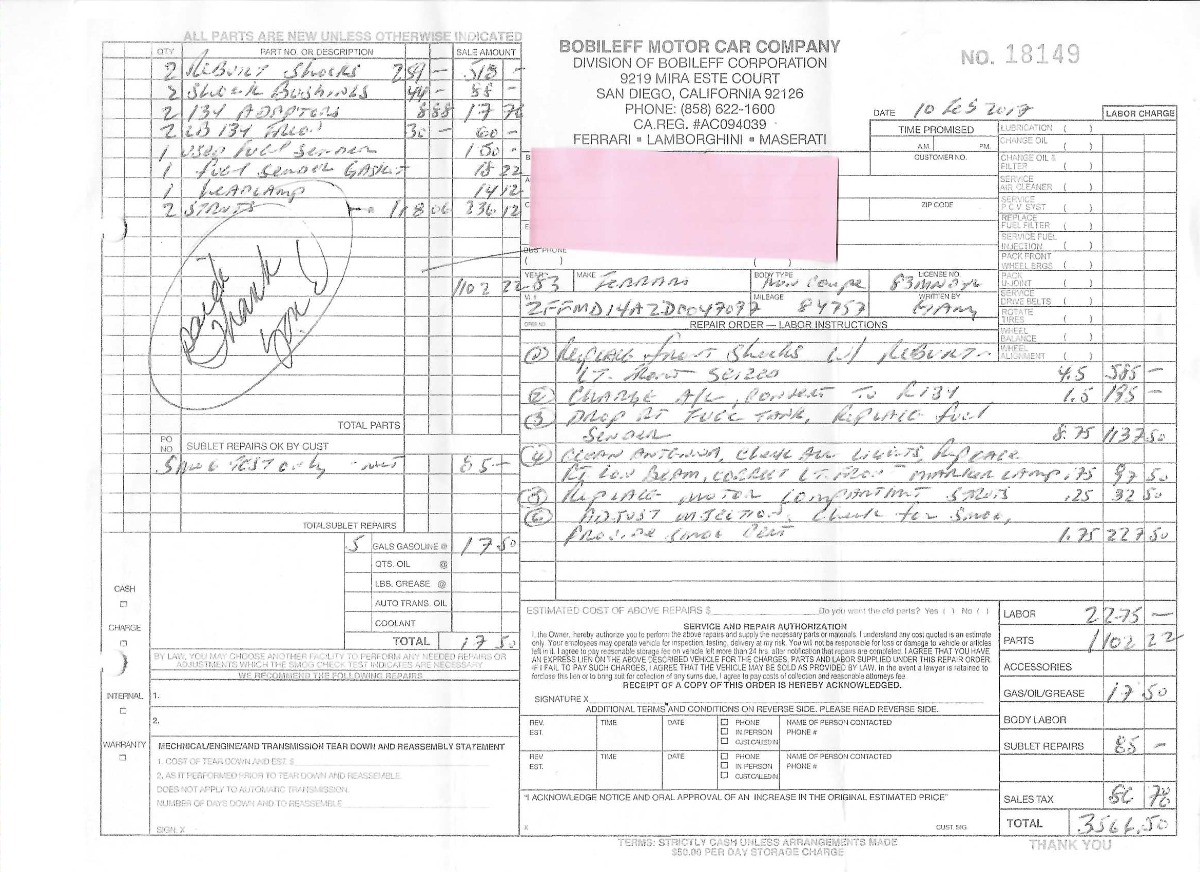 ALL PARTS ARE NEW UNLESS OTHERWISE INDICATED
QTY PART NO. OR DESCRIPTION SALE AMOUNT
2 REBUILT SHOCKS
2 SHOCK BUSHINGS 44- 88 -
2 134 ADAPTORS 8 88 17 76
2 30 - 60 -
1 USED FUEL SENDER 150 -
1 FUEL SENDER GASKET 18 22
1 HEADLAMP 14 12
2 STRUTS 118 06 236 12
1102 22
Paid
Thank
You
TOTAL PARTS
PO NO SUBLET REPAIRS OK BY CUST
SMOG TEST ONLY 85 -
TOTALSUBLET REPAIRS
5 GALS GASOLINE @ 17 50
QTS. OIL @
LBS. GREASE @
AUTO TRANS. OIL
COOLANT
TOTAL 17 50
CASH
CHARGE
INTERNAL
WARRANTY
BY LAW, YOU MAY CHOOSE ANOTHER FACILITY TO PERFORM ANY NEEDED REPAIRS OR
ADJUSTMENTS WHICH THE SMOG CHECK TEST INDICATES ARE NECESSARY
WE RECOMMEND THE FOLLOWING REPAIRS
1.
2.
MECHNICAL/ENGINE/AND TRANSMISSION TEAR DOWN AND REASSEMBLY STATEMENT
1. COST OF TEAR DOWN AND EST. $
2. AS IT PERFORMED PRIOR TO TEAR DOWN AND REASSEMBLE.
DOES NOT APPLY TO AUTOMATIC TRANSMISSION.
NUMBER OF DAYS DOWN AND TO REASSEMBLE
SIGN. X
BOBILEFF MOTOR CAR COMPANY
DIVISION OF BOBILEFF CORPORATION
9219 MIRA ESTE COURT
SAN DIEGO, CALIFORNIA 92126
PHONE: (858) 622-1600
CA.REG. #AC094039
FERRARI • LAMBORGHINI • MASERATI
NO. 18149
DATE 10 FEB 2017
TIME PROMISED
A.M. P.M.
CUSTOMER NO.
ZIP CODE
BUS. PHONE
( ) ( )
YEAR 83 MAKE FERRARI BODY TYPE COUPE LICENSE NO.
MILEAGE 84757 WRITTEN BY
REPAIR ORDER — LABOR INSTRUCTIONS
1 REPLACE FRONT SHOCKS W/ REBUILT -
LT. FRONT SEIZED 4.5 585 -
2 CHARGE A/C, CONVERT TO R134 1.5 195 -
3 DROP RT FUEL TANK, REPLACE FUEL
SENDER 8.75 1137 50
4 CLEAN ANTENNA, CHECK ALL LIGHTS, REPLACE
RT LOW BEAM, CORRECT LT. FRONT MARKER LAMP .75 97 50
5 REPLACE MOTOR COMPARTMENT STRUTS .25 32 50
6 ADJUST INJECTION, CHECK FOR SMOG,
PROVIDE SMOG CERT 1.75 227 50
LABOR CHARGE
LUBRICATION ( )
CHANGE OIL ( )
CHANGE OIL & FILTER ( )
SERVICE AIR CLEANER ( )
SERVICE P.C.V SYST. ( )
REPLACE FUEL FILTER ( )
SERVICE FUEL INJECTION ( )
PACK FRONT WHEEL BRGS ( )
PACK U-JOINT ( )
SERVICE DRIVE BELTS ( )
ROTATE TIRES ( )
WHEEL BALANCE ( )
WHEEL ALIGNMENT ( )
ESTIMATED COST OF ABOVE REPAIRS $ Do you want the old parts? Yes ( ) No ( )
SERVICE AND REPAIR AUTHORIZATION
I, the Owner, hereby authorize you to perform the above repairs and supply the necessary parts or materials. I understand any cost quoted is an estimate
only. Your employees may operate vehicle for inspection, testing, delivery at my risk. You will not be responsible for loss or damage to vehicle or articles
left in it. I agree to pay reasonable storage fee on vehicle left more than 24 hrs. after notification that repairs are completed. I AGREE THAT YOU HAVE
AN EXPRESS LIEN ON THE ABOVE DESCRIBED VEHICLE FOR THE CHARGES, PARTS AND LABOR SUPPLIED UNDER THIS REPAIR ORDER.
IF I FAIL TO PAY SUCH CHARGES, I AGREE THAT THE VEHICLE MAY BE SOLD AS PROVIDED BY LAW. In the event a lawyer is retained to
forclose this lien or to bring suit for collection of any sums due, I agree to pay costs of collection and reasonable attorneys fee.
RECEIPT OF A COPY OF THIS ORDER IS HEREBY ACKNOWLEDGED.
SIGNATURE X
ADDITIONAL TERMS AND CONDITIONS ON REVERSE SIDE. PLEASE READ REVERSE SIDE.
REV. EST. TIME DATE PHONE IN PERSON CUST CALLED IN NAME OF PERSON CONTACTED PHONE #
REV. EST. TIME DATE PHONE IN PERSON CUST CALLED IN NAME OF PERSON CONTACTED PHONE #
"I ACKNOWLEDGE NOTICE AND ORAL APPROVAL OF AN INCREASE IN THE ORIGINAL ESTIMATED PRICE"
X CUST. SIG.
LABOR 2275 -
PARTS 1102 22
ACCESSORIES
GAS/OIL/GREASE 17 50
BODY LABOR
SUBLET REPAIRS 85 -
SALES TAX 86 78
TOTAL 3566.50
TERMS: STRICTLY CASH UNLESS ARRANGEMENTS MADE
$50.00 PER DAY STORAGE CHARGE
THANK YOU